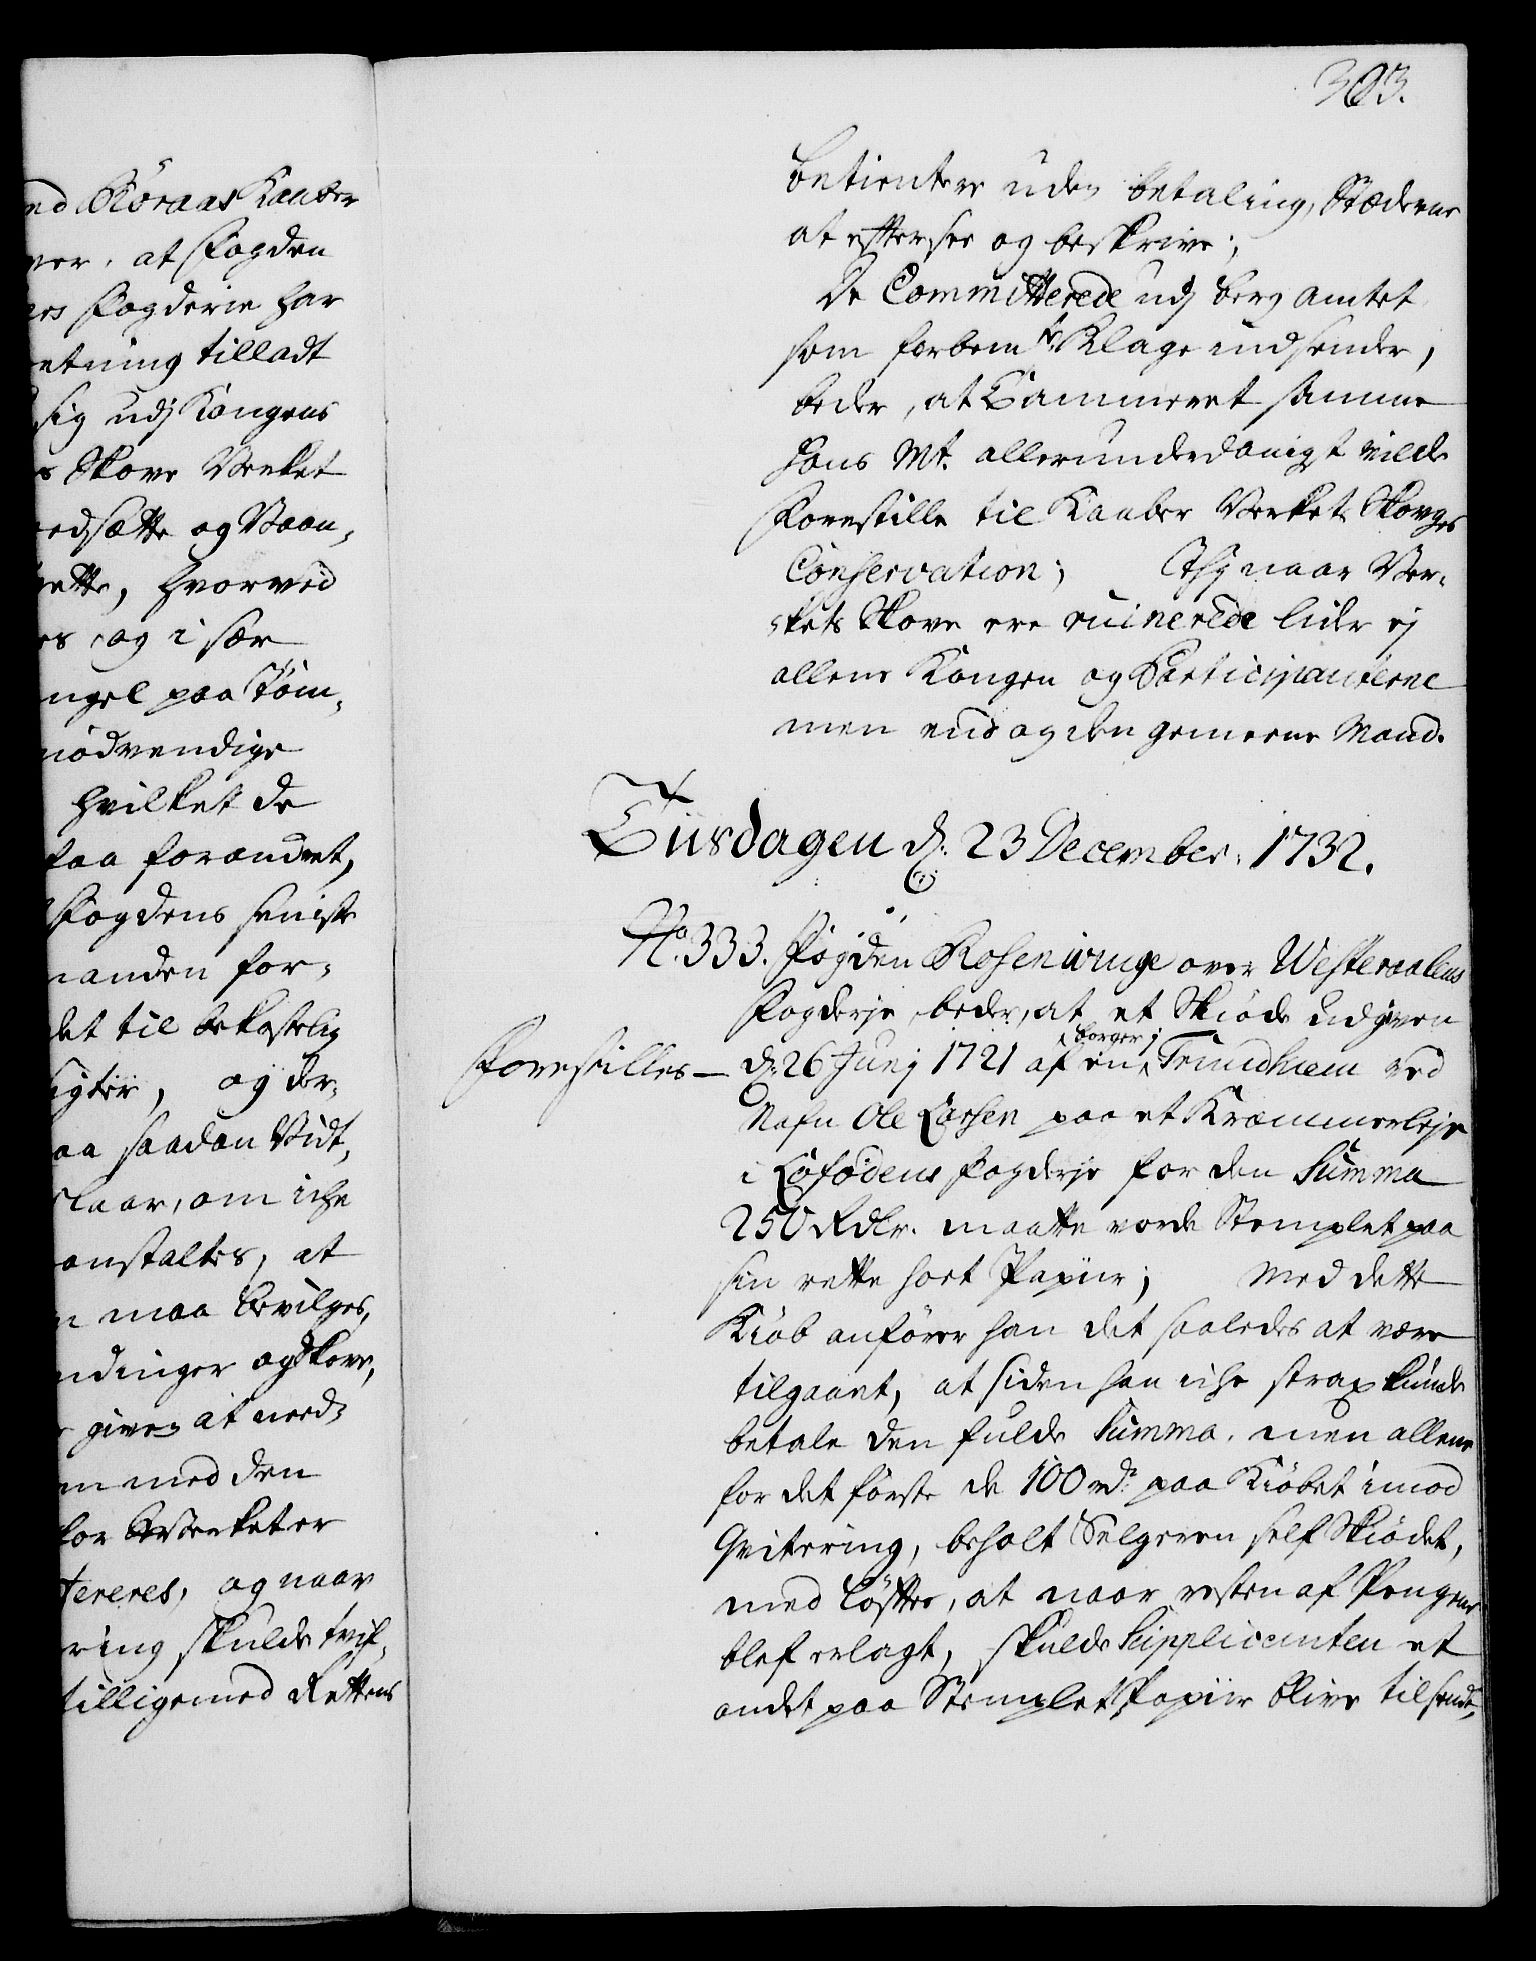 303.
betientere uden betaling, Stæderne
at efftersee og beskrive;
De Committerede udj berg amtet
som forbem.te Klage indsender,
beder, at Cammeret samme
Hans Mt. allerunderdanigst vilde
Forestille til Kaaber Verkets Skovges
Conservation; Thj naar Ver-
kets Skove ere ruinerede lider ej
allene Kongen og Participanterne
men endog den gemeene Mand.
Tiisdagen d. 23 December. 1732.
No. 333. Fogden Rosenvinge over Westeraalens
Fogderje beder, at et Skiøde udgiven
Forestilles — d. 26 Junj 1721 af en borger j Trundhiem ved
Nafn Ole Larsen paa et Kræmmerleje
i Lofodens Fogderje for den Summa
250 Rdlr. maatte vorde Stemplet paa
sin rette sort Papiir; Med dette
Kiøb anfører han det saaledes at være
tilgaaet, at siden han iche strax kunde
betale den fulde Summa, men allene
for det første de 100 rd. paa Kiøbet imod
Qvitering, beholt Selgeren self Skiødet,
med løffte, at naar resten af Pengene
blef erlagt, skulde Supplicanten et
andet paa Stemplet Papiir blive tilsendt,
ed Røraas Kaaber
ver, at Fogden
Fogderie har
etning tilladt
sig udj Kongens
s Skove Verket
edsætte og Vaan,
ette, hvorved
es og i sær
ngel paa Tøm,
nødvendige
hvilket de
paa forandret,
Fogdens seniste
anden for-
det til bekostelig
igter, og der-
aa saadan Vidt,
slaar, om iche
anstaltes, at
n maa bevilges,
ndinger og Skove,
given at need-
m med den
for Verket er
tereres, og naar
ring skulde trif,
tilligemed Rettens